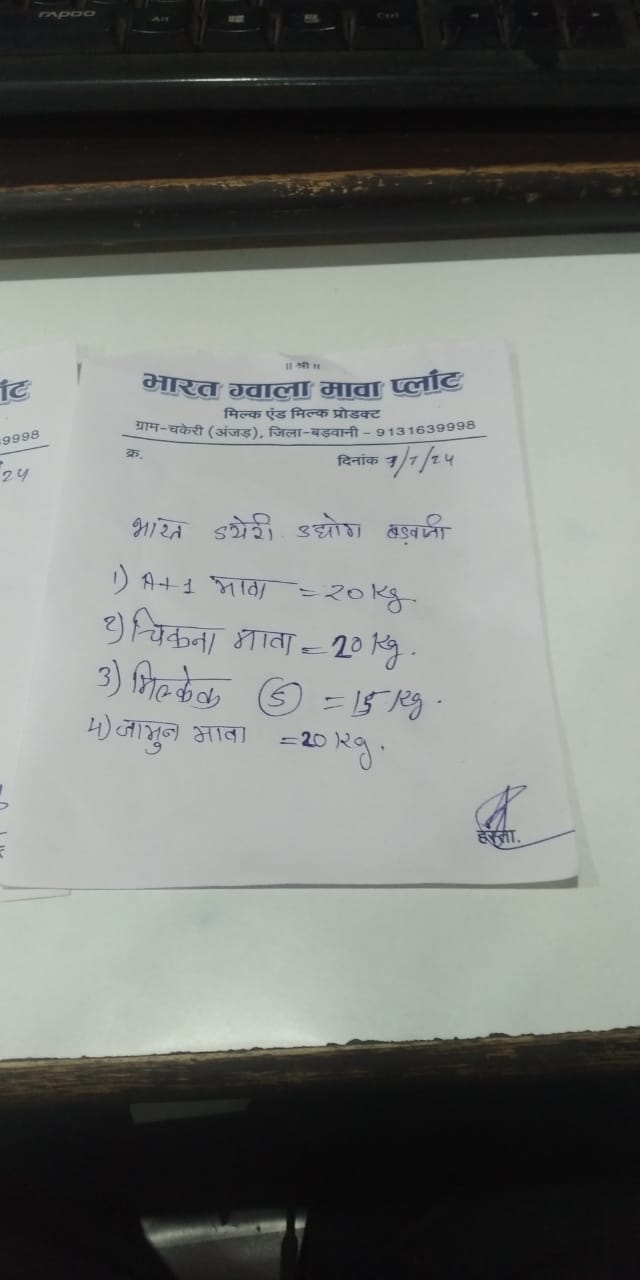 rapoo Alt Ctrl
॥ श्री ॥
भारत ग्वाला मावा प्लांट
मिल्क एंड मिल्क प्रोडक्ट
ग्राम-चकेरी (अंजड़), जिला-बड़वानी - 9131639998
क्र. दिनांक 7/7/24
भारत डयेरी उद्योग बड़वानी
1) A+1 मावा = 20 kg.
2) चिकना मावा = 20 kg.
3) मिल्केक (5) = 15 kg.
4) जामुन मावा = 20 kg.
हस्ता.
ांट
9998
24